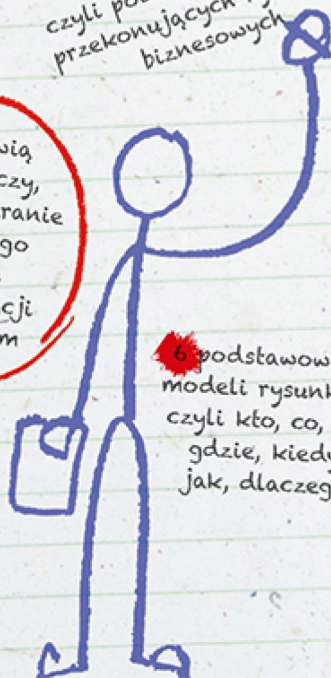 czyli
przekonujących
biznesowych
czy,
ranie
go
cji
m
6 podstawow
modeli rysunk
czyli kto, co,
gdzie, kiedy
jak, dlaczeg